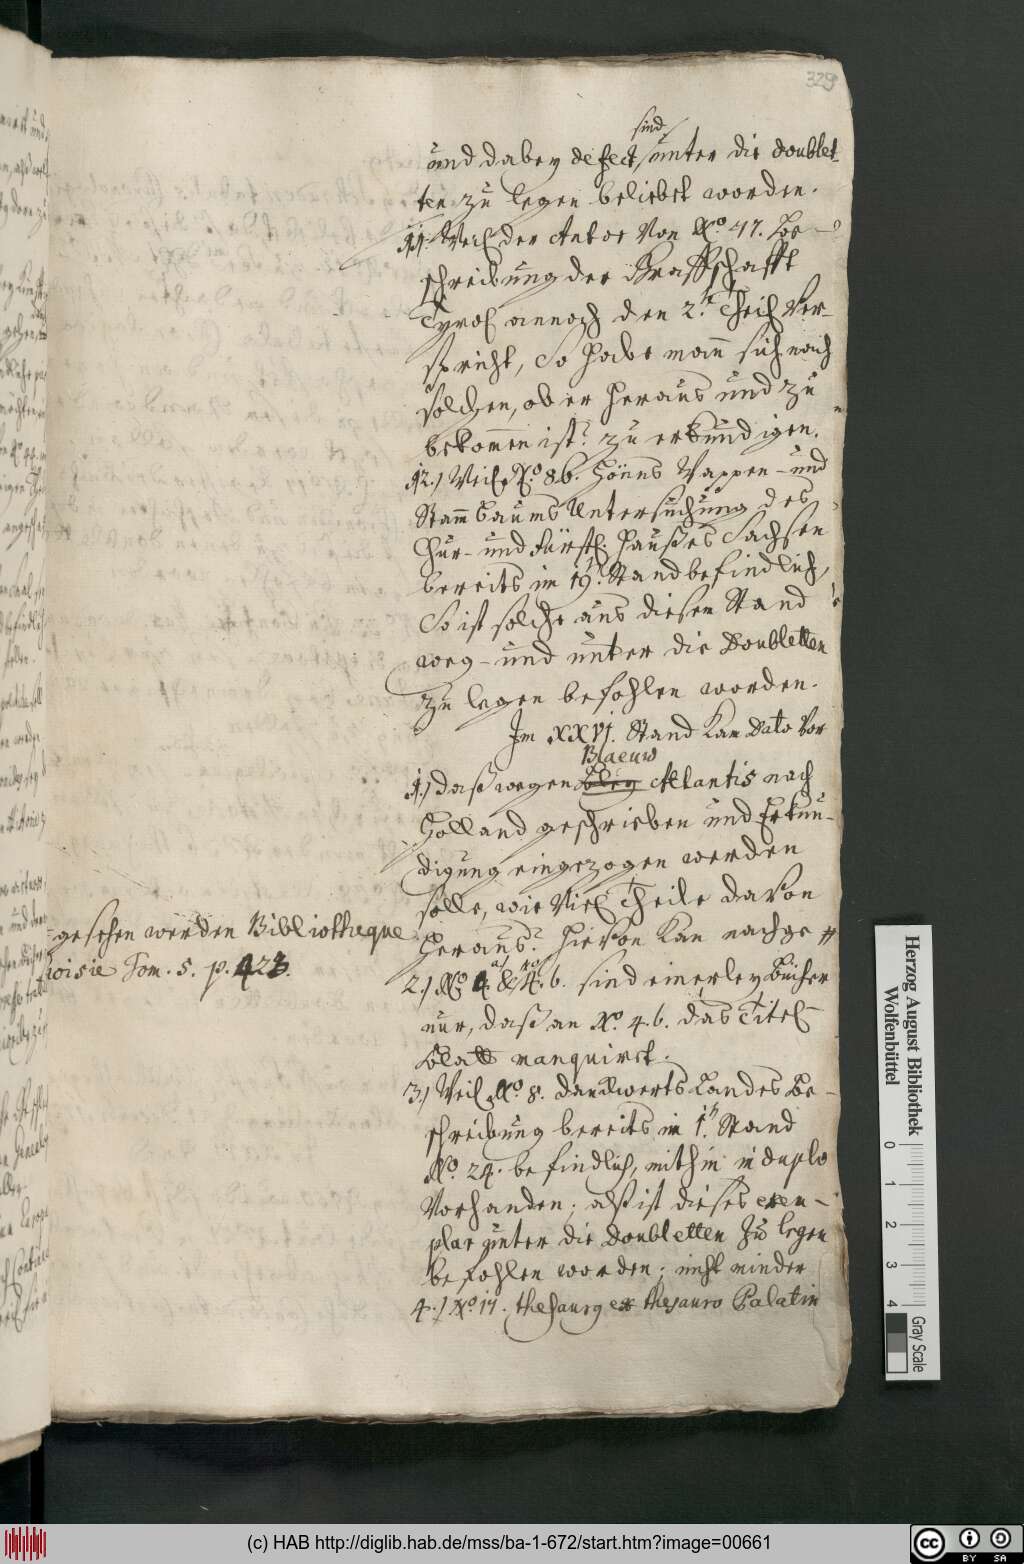 329
sind
und dabey defect, unter die doublet-
ten zu legen beliebt worden.
11. Weil der Autor von No. 47. Be-
schreibung der Graffschafft
Tyrol annoch den 2.t Theil ver-
spricht, So habe man sich nach
solchen, ob er heraus und zu
bekommen ist? zu erkundigen.
12.) Weil No. 86. Hönns Wappen- und
Stammbaums Untersuchung des
Chur- und Fürstl. Haußes Sachsen
bereits im 19. Stand befindlich,
So ist solche aus diesem Stand
weg- und unter die Doubletten
zu legen befohlen worden.
Im XXVI. Stand kam Dato vor
Blaeuw
1.) daß wegen Atlantis nach
Holland geschrieben und Erkun-
digung eingezogen werden
solle, wie viel Theile davon
heraus? hievon kan nachge #
-gesehen werden Bibliotheque
Tom. 5. p. 423.
2.) No. 4. a) & No 4. b. sind einerley Bücher
nur, daß an No. 4. b. das Titel-
Blatt manquiret.
3.) Weil No. 8. Danckwerts Landes Be-
schreibung bereits in 1. Stand
No. 24. befindlich, mithin in duplo
vorhanden; alß ist dieses exem-
plar unter die Doubletten zu legen
befohlen worden; nicht minder
4.) No. 17. thesaurg ex thesauro Palatin
Herzog August Bibliothek
Wolfenbüttel
0 1 2 3 4
Gray Scale
(c) HAB http://diglib.hab.de/mss/ba-1-672/start.htm?image=00661
cc BY SA